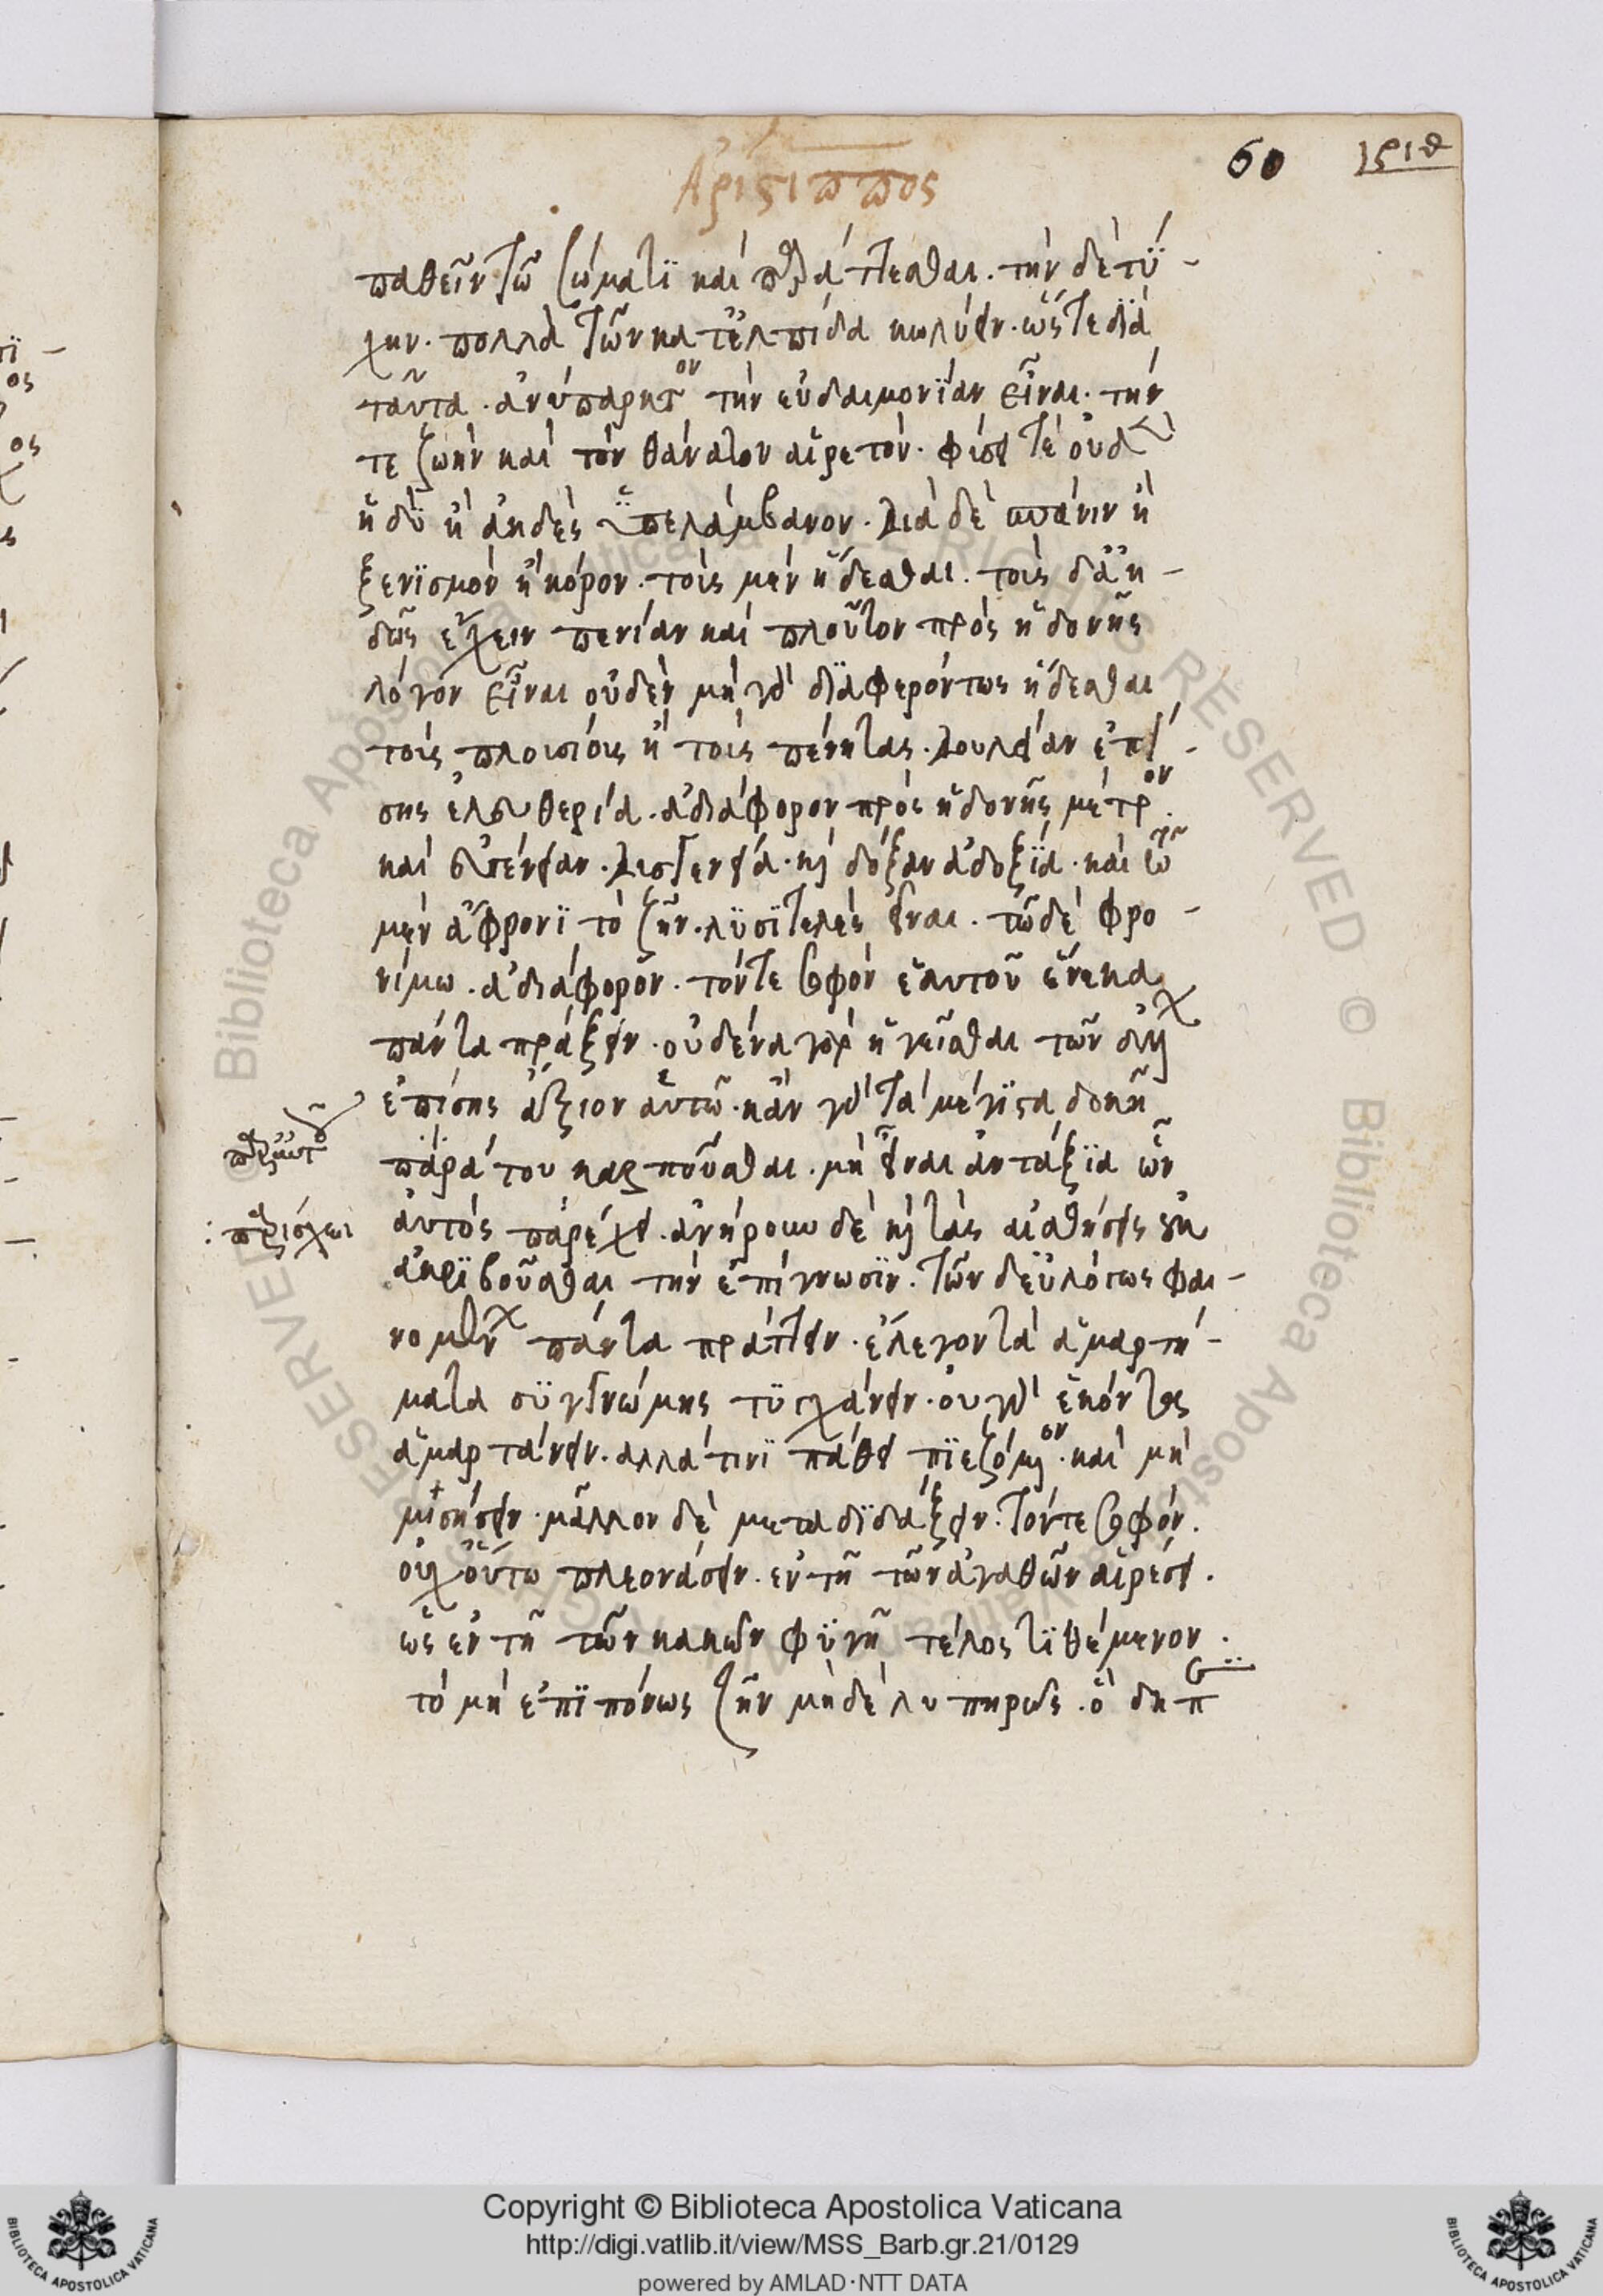 Ἀρίστιππος
60
παθεῖν τῶ σώματϊ καὶ ταράττεσθαι. τὴν δὲ τύ-
χην. πολλὰ τῶν κατἐλπίδα κωλύειν. ὥστε διὰ
ταῦτα. ἀνύπαρκτον τὴν εὐδαιμονίαν εἶναι. τήν
τε ζωὴν καὶ τὸν θάνατον αἱρετόν. φύσει τὲ οὐδὲν
ἡδὺ ἢ ἀηδὲς ὑπελάμβανον. Διὰ δὲ σπάνιν ἢ
ξενϊσμὸν ἢ κόρον. τοὺς μὲν ἥδεσθαι. τοὺς δἀη-
δῶς ἔχειν πενίαν καὶ πλοῦτον πρὸς ἡδονῆς
λόγον εἶναι οὐδέν μὴ γὰρ διαφερόντως ἥδεσθαι
τοὺς πλουσίους ἢ τοὺς πένητας. Δουλείαν ἐπί-
σης ἐλευθερία. ἀδιάφορον πρὸς ἡδονῆς μέτρον.
καὶ εὐγένειαν. Δυσγενεία. καὶ δόξαν ἀδοξία. καὶ τῶ
μὲν ἄφρονϊ τὸ ζῆν. λυσϊτελὲς εἶναι. τῶ δὲ φρο-
νίμω. ἀδιάφορον. τόν τε σοφὸν ἑαυτοῦ ἕνεκα
πάντα πράξειν. οὐδένα γὰρ ἡγεῖσθαι τῶν ἄλλων
ἐπίσης ἄξιον αὐτῶ. κἂν γὰρ τὰ μέγιστα δοκῆ
παρά του καρποῦσθαι. μὴ εἶναι ἀντάξϊα ὧν
αὐτὸς παρέχει. ἀνήρουν δὲ καὶ τὰς αἰσθήσεις οὐκ
ἀκρϊβούσθαι τὴν ἐπίγνωσϊν. τῶν δεὐλόγως φαι-
νομένων πάντα πράττειν. ἔλεγον τὰ ἁμαρτή-
ματα συγγνώμης τυγχάνειν. οὐ γὰρ ἑκόντας
ἁμαρτάνειν. ἀλλά τινϊ πάθει πϊεζόμενον. καὶ μὴ
μισήσειν. μᾶλλον δὲ μεταδϊδάξειν. τόν τε σοφόν.
οὐχ οὕτω πλεονάσειν. ἐν τῆ τῶν ἀγαθῶν αἱρέσει.
ὡς ἐν τῆ τῶν κακῶν φϋγῆ τέλος τϊθέμενον.
τὸ μὴ ἐπϊπόνως ζῆν μηδὲ λυπηρῶς. ὃ δὴ π
Copyright © Biblioteca Apostolica Vaticana
http://digi.vatlib.it/view/MSS_Barb.gr.21/0129
powered by AMLAD·NTT DATA